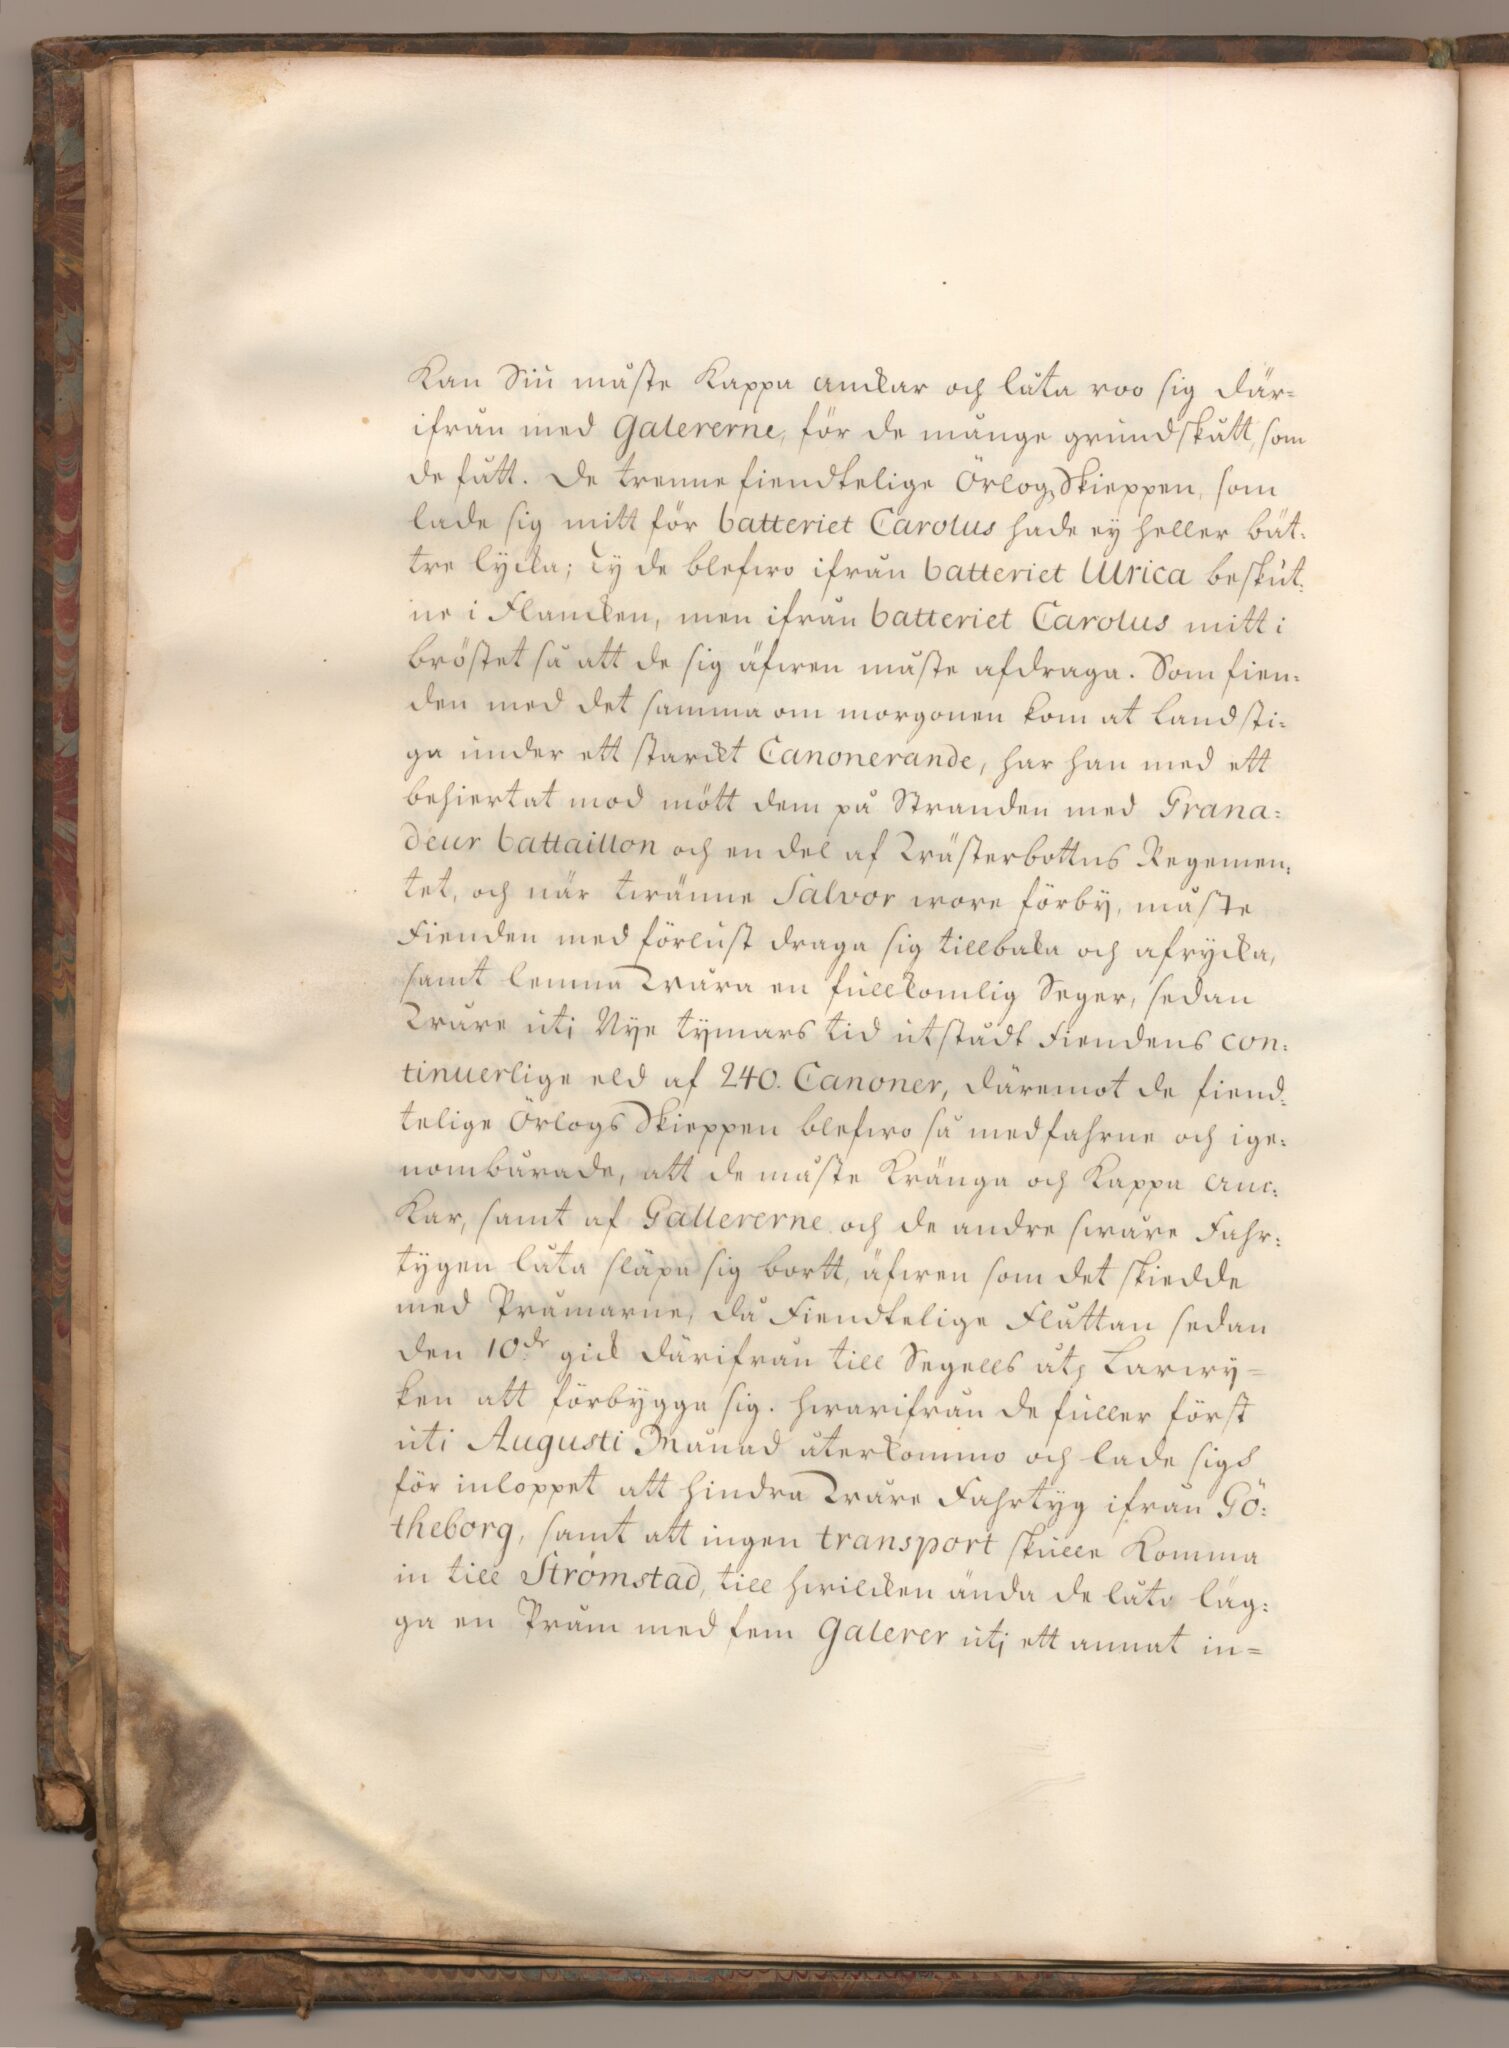 kan Siu måste kappa anckar och låta roo sig där=
ifrån med Galererne, för de månge grundskått, som
de fått. De trenne fiendtelige Örlogs Skieppen, som
lade sig mitt för batteriet Carolus hade ey heller bät:
tre lycka; ty de blefwo ifrån batteriet Ulrica beskut:
ne i Flancken, men ifrån batteriet Carolus mitt i
bröstet så att de sig äfwen måste afdraga. Som fien:
den med det samma om morgonen kom at landsti=
ga under ett starckt Canonerande, har han med ett
behiertat mod mött dem på Stranden med Grana:
deur battaillon och en del af Wästerbottns Regemen:
tet, och när twänne Salvor wore förby, måste
Fienden med förlust draga sig tillbaka och afrycka,
samt lemna Wåra en fullkomlig Seger, sedan
Wåre uti Nye tymars tid utstådt Fiendens con:
tinuerlige eld af 240. Canoner, däremot de fiend:
telige Örlogs Skieppen blefwo så medfahrne och ige:
nomburade, att de måste kränga och kappa anc:
kar, samt af Gallererne och de andre swåre Fahr:
tygen låta släpa sig bortt, äfwen som det skiedde
med Pråmarne, då Fiendtelige Flåttan sedan
den 10.de gick därifrån till Segells åt Larwy=
ken att förbygga sig. hwarifrån de fuller först
uti Augusti Månad återkommo och lade sig
för inloppet att hindra Wåre Fahrtyg ifrån Gö:
theborg, samt att ingen transport skulle komma
in till Strömstad, till hwilcken ända de låto läg:
ga en Pråm med fem Galerer uti ett annat in=